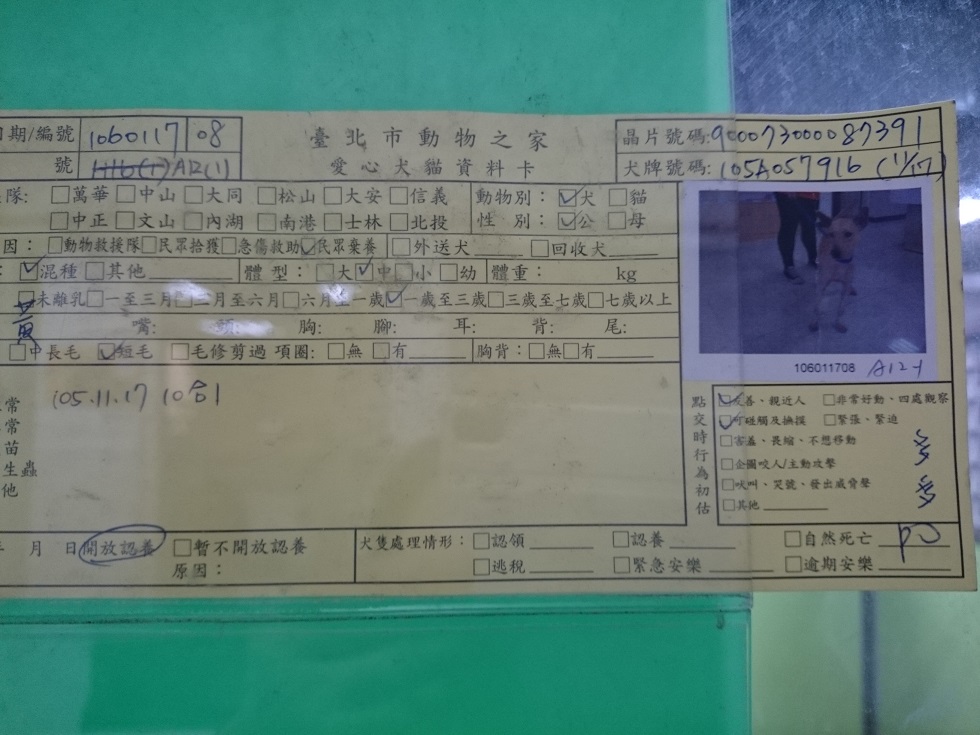 期/編號 1060117 08 臺北市動物之家 晶片號碼:900073000087391
號 A12(1) 愛心犬貓資料卡 犬牌號碼:105A057916 (11/17)
隊: □萬華 □中山 □大同 □松山 □大安 □信義 動物別: ☑犬 □貓
□中正 □文山 □內湖 □南港 □士林 □北投 性 別: ☑公 □母
因: □動物救援隊 □民眾拾獲 □急傷救助 ☑民眾棄養 □外送犬 □回收犬
: ☑混種 □其他 體型: □大 ☑中 □小 □幼 體重: kg
□未離乳 □一至三月 □三月至六月 □六月至一歲 ☑一歲至三歲 □三歲至七歲 □七歲以上
嘴: 頭: 胸: 腳: 耳: 背: 尾:
□中長毛 ☑短毛 □毛修剪過 項圈: □無 □有 胸背: □無 □有
106011708 A12-1
常 105.11.17 10合1
常
苗
生蟲
他
點交時行為初估
☑友善、親近人 □非常好動、四處觀察
☑可碰觸及撫摸 □緊張、緊迫
□害羞、畏縮、不想移動
□企圖咬人/主動攻擊
□吠叫、哭號、發出威脅聲
□其他
月 日 開放認養 □暫不開放認養 犬隻處理情形: □認領 □認養 □自然死亡
原因: □逃脫 □緊急安樂 □逾期安樂